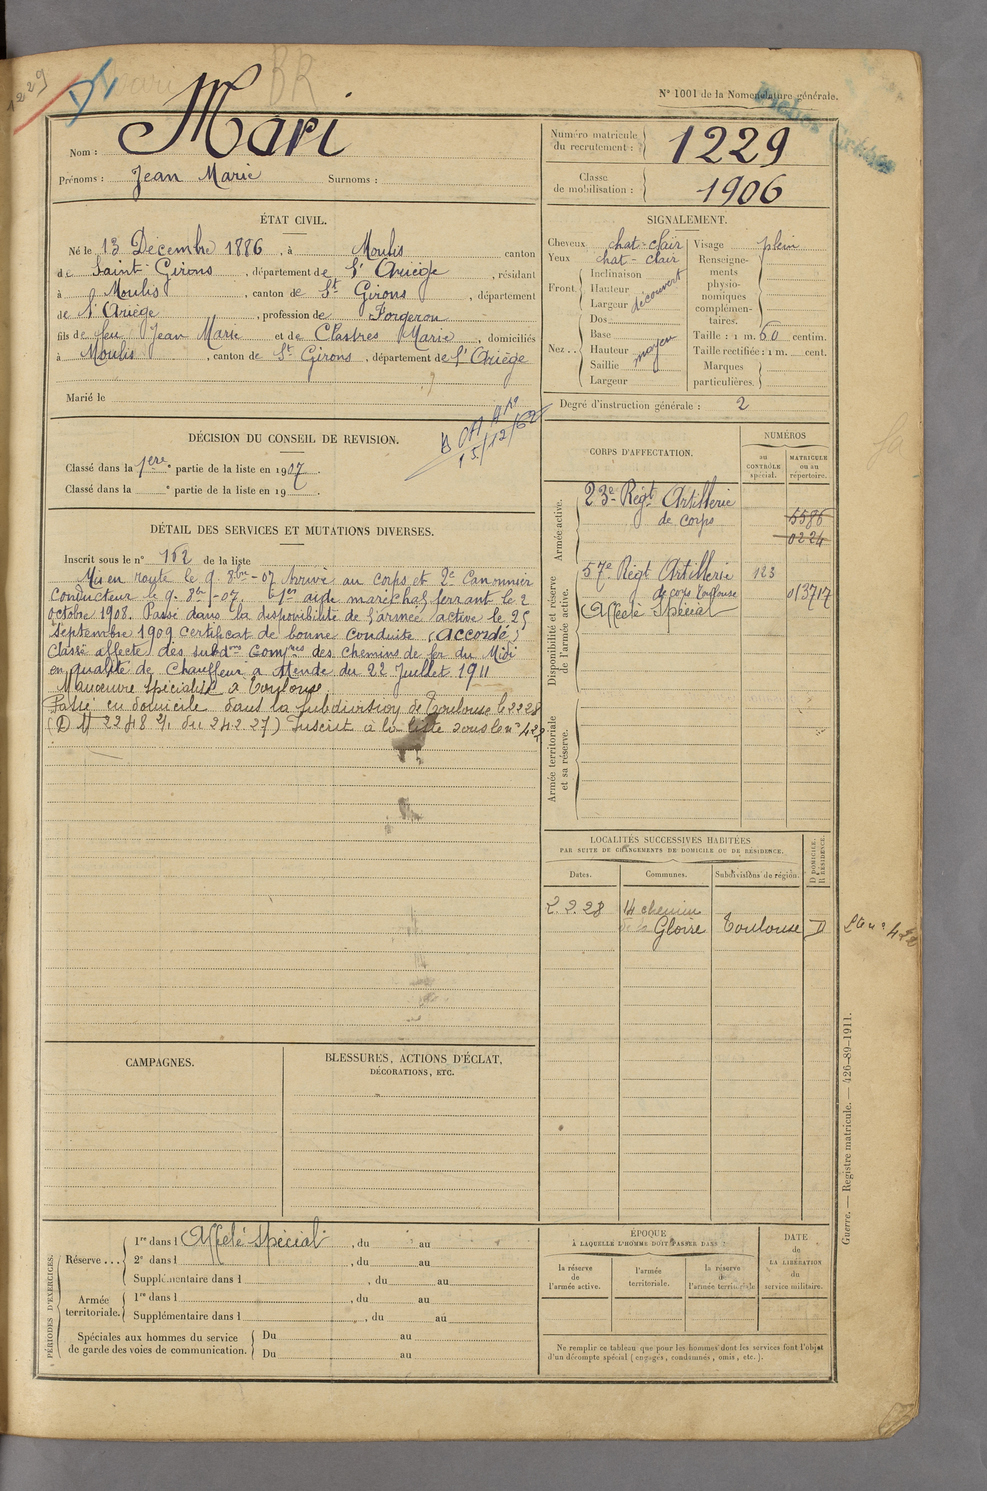 1229
BR
N° 1001 de la Nomenclature générale.
Nom : Mari
Prénoms : Jean Marie Surnoms :
Numéro matricule du recrutement : 1229
Classe de mobilisation : 1906
ÉTAT CIVIL.
Né le 13 Décembre 1886, à Moulis canton
de Saint-Girons, département de l'Ariège, résidant
à Moulis, canton de St Girons, département
de l'Ariège, profession de Forgeron
fils de feu Jean Marie et de Clastres Marie, domiciliés
à Moulis, canton de St Girons, département de l'Ariège
Marié le
SIGNALEMENT.
Cheveux chat-clair
Yeux chat-clair
Front Inclinaison
Hauteur
Largeur découvert
Nez Dos
Base
Hauteur moyen
Saillie
Largeur
Visage plein
Renseignements physionomiques complémentaires.
Taille : 1 m. 60 centim.
Taille rectifiée : 1 m. cent.
Marques particulières.
Degré d'instruction générale : 2
DÉCISION DU CONSEIL DE REVISION.
Classé dans la 1ere partie de la liste en 1907.
Classé dans la e partie de la liste en 19
15/12/62
DÉTAIL DES SERVICES ET MUTATIONS DIVERSES.
Inscrit sous le n° 162 de la liste
Mis en route le 9. 8bre-07 Arrivé au corps et 2e Canonnier
Conducteur le 9. 8br-07. 1er aide maréchal ferrant le 2
Octobre 1908. Passé dans la disponibilité de l'armée active le 25
Septembre 1909 certificat de bonne conduite (Accordé)
Classé affecté des subdons Compies des chemins de fer du Midi
en qualité de Chauffeur à Mende du 22 Juillet 1911
Manœuvre spécialisé à Toulouse
Passé en domicile dans la subdivision de Toulouse le 2 2 28
(D M 2248 2/1 du 24 2 27) Inscrit à la liste sous le n° 422
CORPS D'AFFECTATION.
NUMÉROS
au CONTRÔLE spécial.
MATRICULE ou au répertoire.
Armée active.
23e Régt Artillerie
de corps
5586
0224
Disponibilité et réserve de l'armée active.
57e Régt Artillerie 123
de corps Toulouse 013717
Affecté Spécial
Armée territoriale et sa réserve.
LOCALITÉS SUCCESSIVES HABITÉES
PAR SUITE DE CHANGEMENTS DE DOMICILE OU DE RÉSIDENCE.
Dates. Communes. Subdivisions de région. D DOMICILE. R RÉSIDENCE.
2.2.28 14 chemin
de la Gloire Toulouse D
Lte n° 422
CAMPAGNES.
BLESSURES, ACTIONS D'ÉCLAT,
DÉCORATIONS, ETC.
PÉRIODES D'EXERCICES.
Réserve... 1re dans l Affecté spécial, du au
2e dans l, du au
Supplémentaire dans l, du au
Armée territoriale. 1re dans l, du au
Supplémentaire dans l, du au
Spéciales aux hommes du service
de garde des voies de communication. Du au
Du au
ÉPOQUE
À LAQUELLE L'HOMME DOIT PASSER DANS :
la réserve de l'armée active.
l'armée territoriale.
la réserve de l'armée territoriale
DATE de LA LIBÉRATION du service militaire.
Ne remplir ce tableau que pour les hommes dont les services font l'objet
d'un décompte spécial (engagés, condamnés, omis, etc.).
Guerre. — Registre matricule. — 426-89-1911.